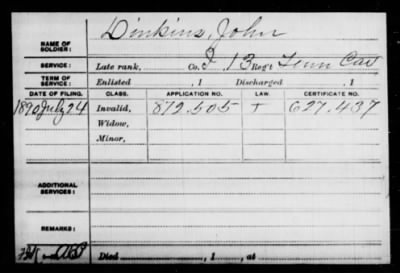 NAME OF SOLDIER: Dinkins, John
SERVICE: Late rank, Co. I, 13 Reg't Tenn Cav
TERM OF SERVICE: Enlisted , 1 Discharged , 1
DATE OF FILING. CLASS. APPLICATION NO. LAW. CERTIFICATE NO.
1890 July 24 Invalid, 872.505 T 627.437
Widow,
Minor,
ADDITIONAL SERVICES:
REMARKS:
Died , 1 , at